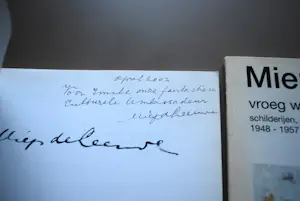 april 2002
Voor Emile onze fantastische
Culturele Ambassadeur
Miep de Leeuwe
Miep de Leeuwe
Mie
vroeg w
schilderijen,
1948 - 1957